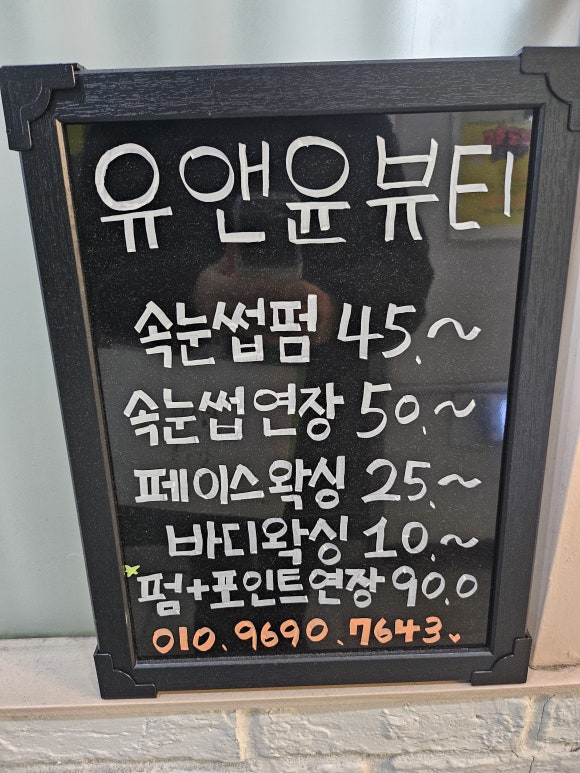 유앤윤뷰티
속눈썹펌 45.~
속눈썹연장 50.~
페이스왁싱 25.~
바디왁싱 10.~
펌+포인트연장 90.0
010.9690.7643.